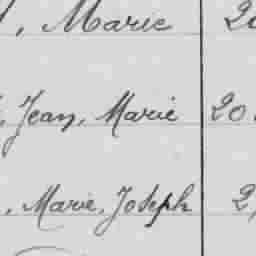 , Marie 20
, Jean, Marie 20
, Marie, Joseph 2